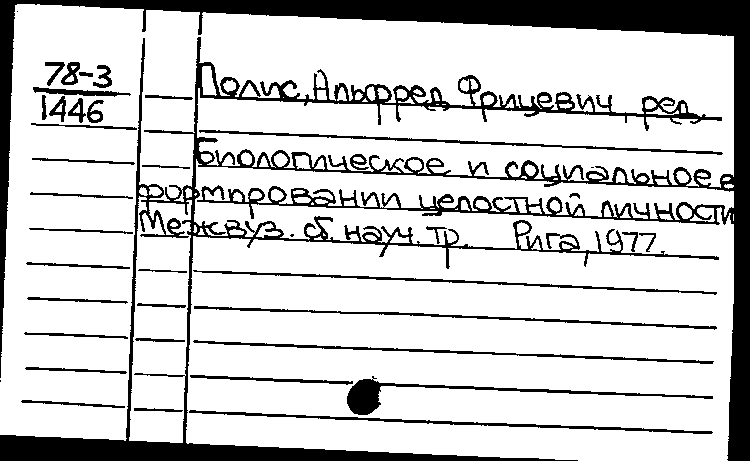 78-3
1446
Полис, Альфред Фрицевич, ред.
Биологическое и социальное в
формировании целостной личности
Межвуз. сб. науч. тр. Рига, 1977.